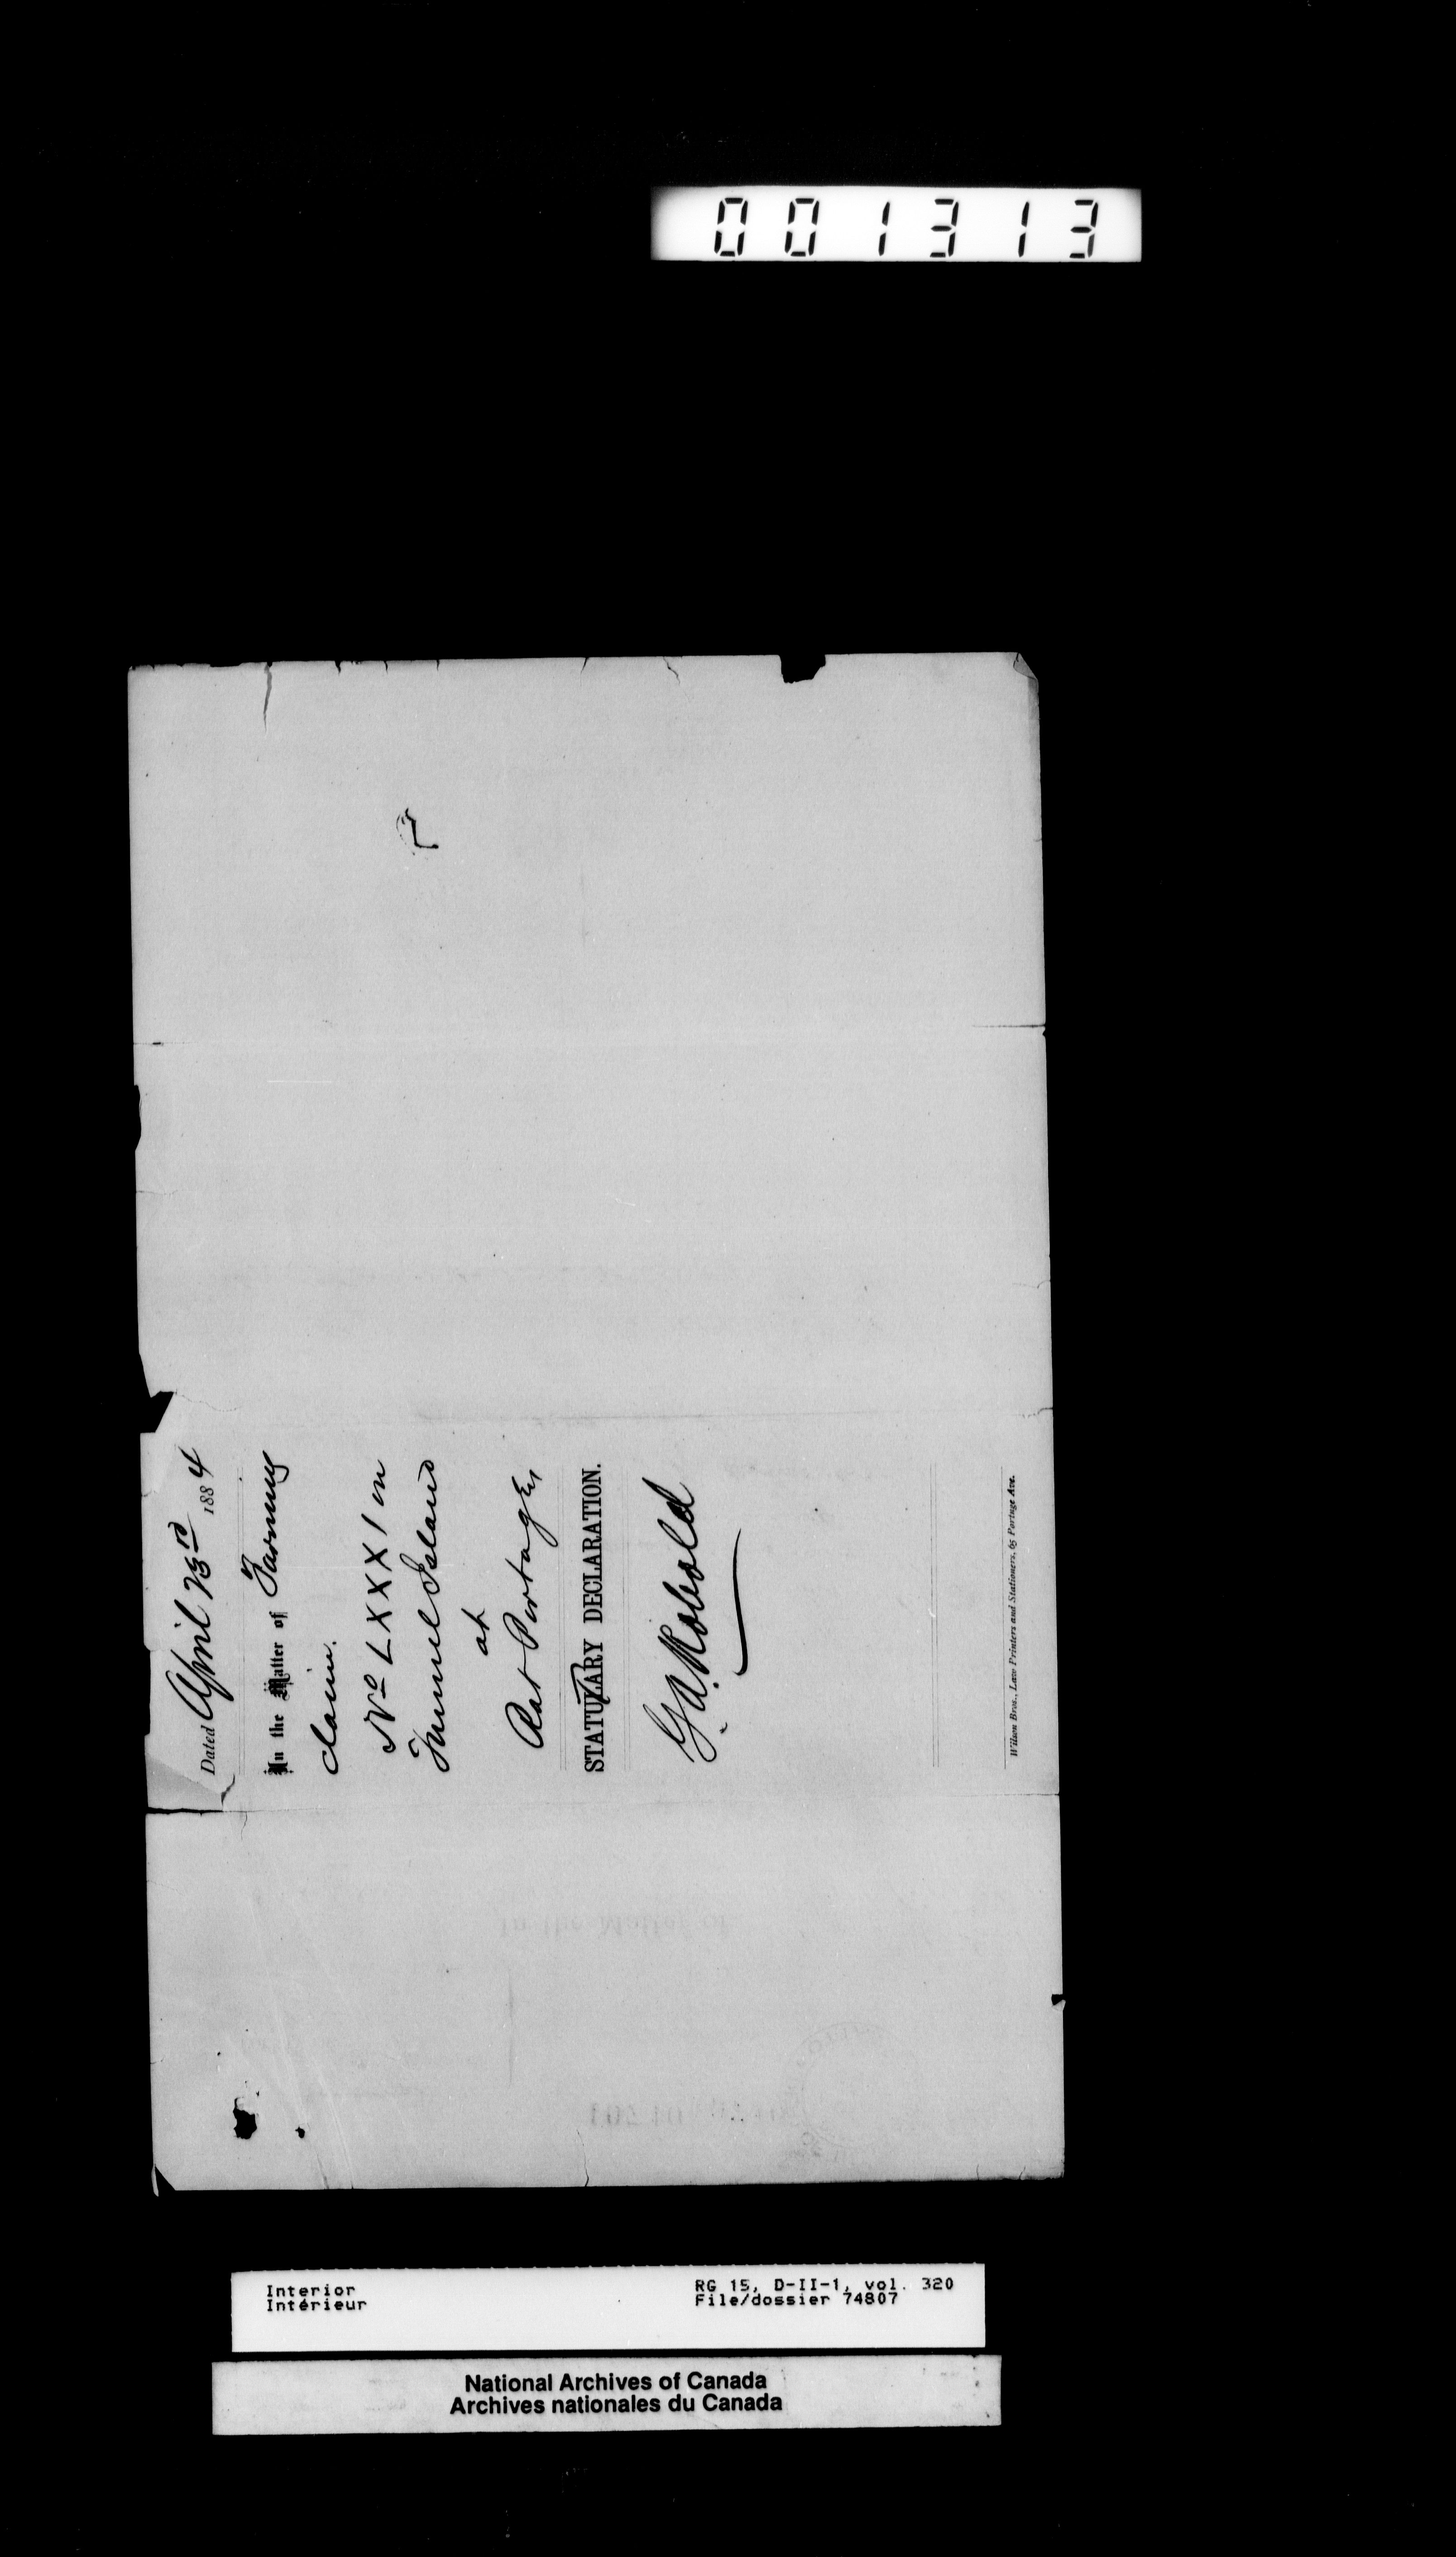 001313
Dated April 23rd 1884
In the Matter of Farming
Claim.
No LXXXI on
Tunnel Island
at
Rat Portage
STATUTARY DECLARATION.
G. A. Kobold
Wilson Bros., Law Printers and Stationers, 65 Portage Ave.
In the Matter of
Interior
Intérieur
RG 15, D-II-1, vol. 320
File/dossier 74807
National Archives of Canada
Archives nationales du Canada